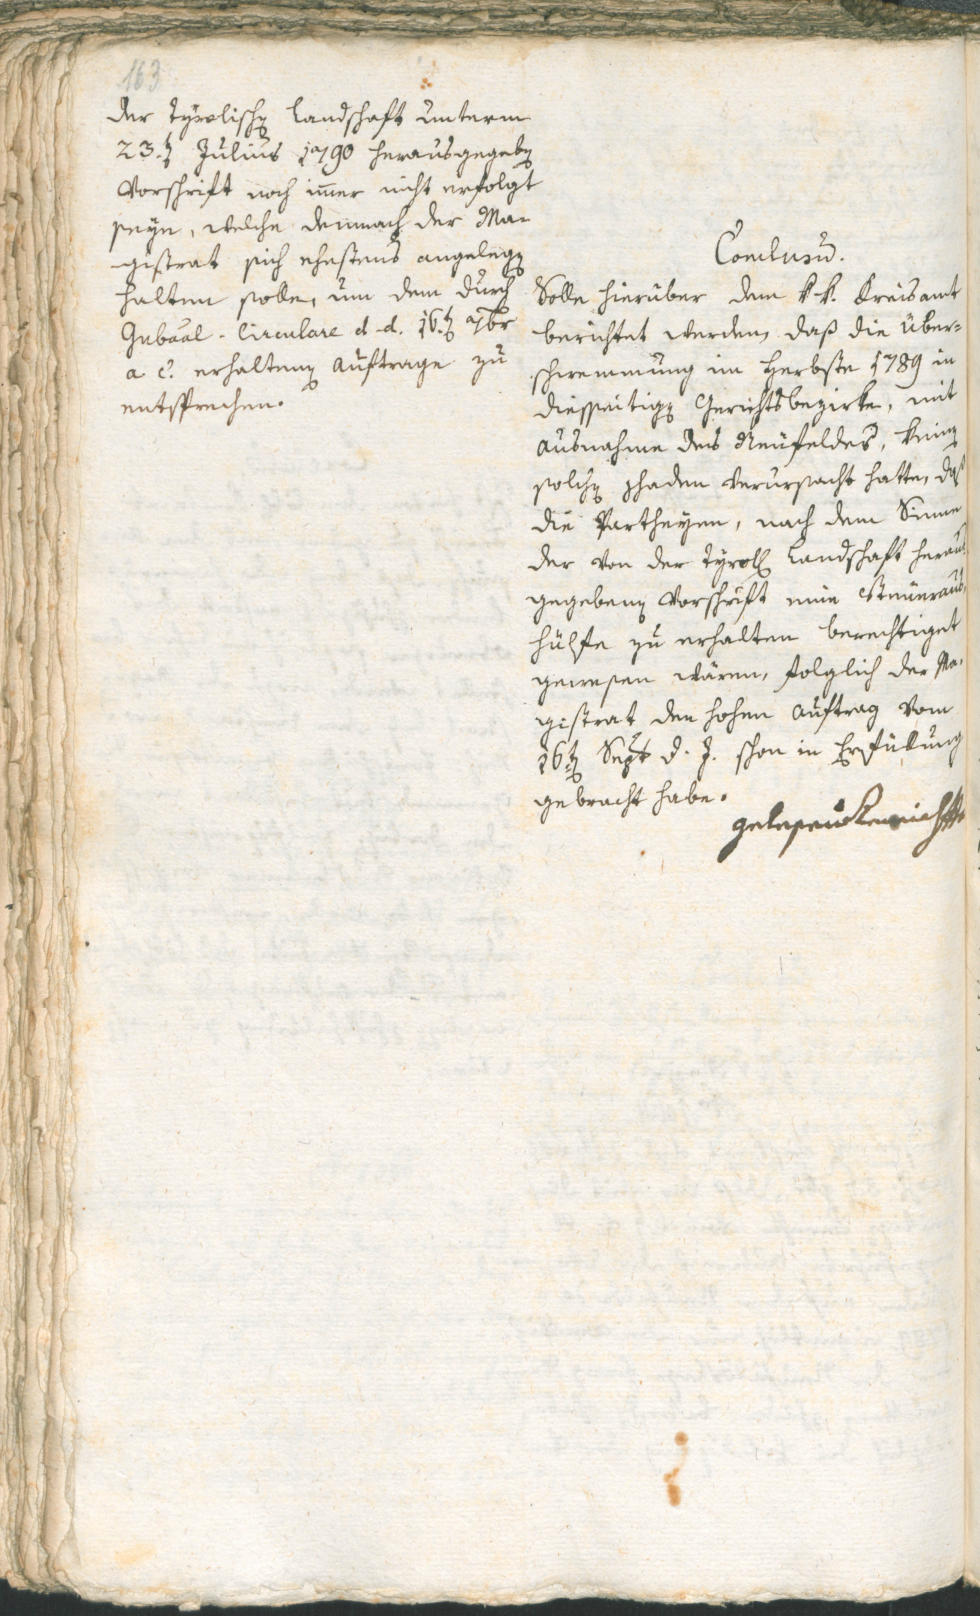 163
der Tyrolischen Landschaft unterm
23.ten Julius 1790 herausgegeben
Vorschrift noch immer nicht erfolgt
seyn, welche demnach der Ma-
gistrat sich ehestens angelegen
halten solle, um dem durch
Gubaal-Circulare d-d. 16.ten 7br
a c. erhaltenen Auftrage zu
entsprechen.
Conclusũ.
Solle hierüber dem k.k. Kreisamt
berichtet werden, daß die Über-
schwemmung im Herbste 1789 in
diesseitigen Gerichtsbezirke, mit
Ausnahme des Neufeldes, keinen
solchen Schaden verursacht hatte, daß
die Partheyen, nach dem Sinne
der von der Tyrol. Landschaft heraus
gegebenen Vorschrift eine Steueraus-
hülfe zu erhalten berechtiget
gewesen wären, folglich der Ma-
gistrat den hohen Auftrag vom
16.ten Sept d. J. schon in Erfüllung
gebracht habe.